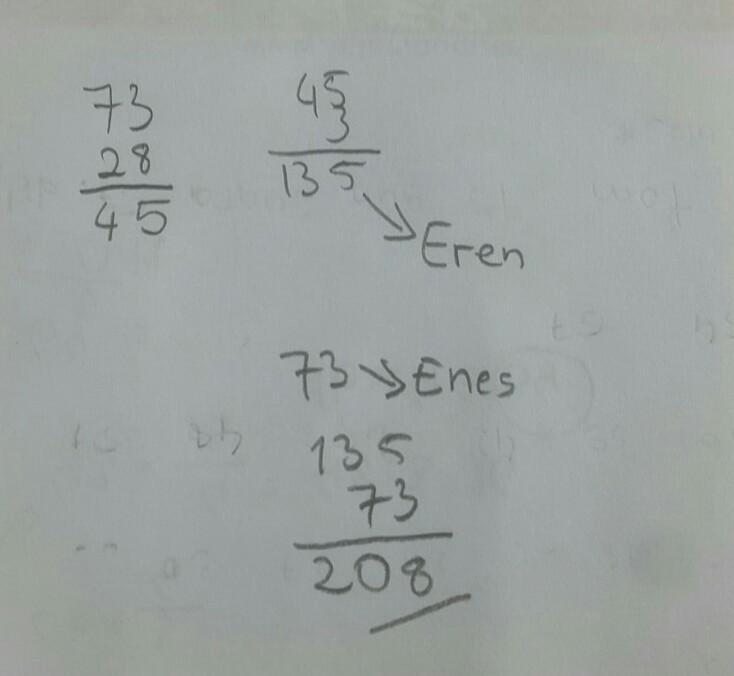 73
28
45
45
3
135
Eren
73 Enes
135
73
208